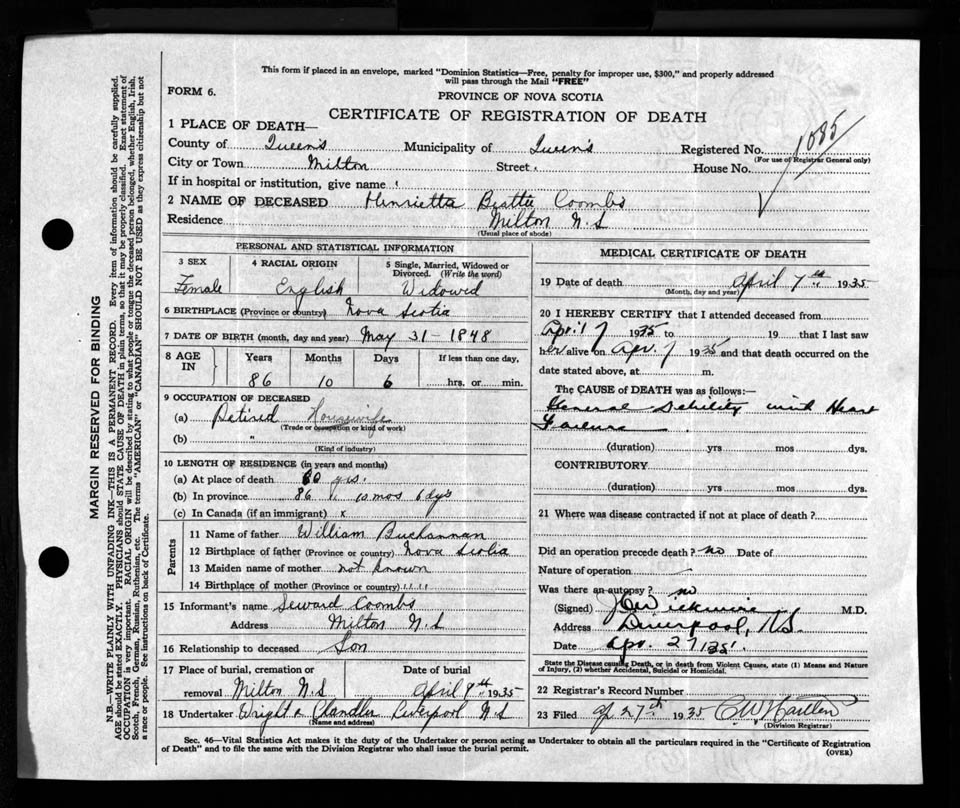 This form if placed in an envelope, marked "Dominion Statistics—Free, penalty for improper use, $300," and properly addressed
will pass through the Mail "FREE"
FORM 6.
PROVINCE OF NOVA SCOTIA
CERTIFICATE OF REGISTRATION OF DEATH
1 PLACE OF DEATH—
County of Queen's Municipality of Queen's Registered No. 1085
(For use of Registrar General only)
City or Town Milton Street House No.
If in hospital or institution, give name
2 NAME OF DECEASED Henrietta Beattie Coombs
Residence Milton N.S
(Usual place of abode)
PERSONAL AND STATISTICAL INFORMATION
3 SEX 4 RACIAL ORIGIN 5 Single, Married, Widowed or
Divorced. (Write the word)
Female English Widowed
6 BIRTHPLACE (Province or country) Nova Scotia
7 DATE OF BIRTH (month, day and year) May 31 - 1848
8 AGE IN Years Months Days If less than one day,
86 10 6 hrs. or min.
9 OCCUPATION OF DECEASED
(a) Retired Housewife
(Trade or occupation or kind of work)
(b) "
(Kind of industry)
10 LENGTH OF RESIDENCE (in years and months)
(a) At place of death yrs.
(b) In province 86 " 10 mos 6 dys
(c) In Canada (if an immigrant) x
Parents
11 Name of father William Buchannan
12 Birthplace of father (Province or country) Nova Scotia
13 Maiden name of mother not known
14 Birthplace of mother (Province or country) " "
15 Informant's name Seward Coombs
Address Milton N.S
16 Relationship to deceased Son
17 Place of burial, cremation or Date of burial
removal Milton N.S April 9th 1935
18 Undertaker Wright & Chandler Liverpool N.S
(Name and address)
MEDICAL CERTIFICATE OF DEATH
19 Date of death April 7th 1935
(Month, day and year)
20 I HEREBY CERTIFY that I attended deceased from
April 7 1935 to 19 that I last saw
her alive on Apr. 7 1935 and that death occurred on the
date stated above, at m.
The CAUSE of DEATH was as follows:—
General Debility with Heart
Failure
(duration) yrs mos dys.
CONTRIBUTORY
(duration) yrs mos dys.
21 Where was disease contracted if not at place of death?
Did an operation precede death? no Date of
Nature of operation
Was there an autopsy? no
(Signed) Wickwire M.D.
Address Liverpool, N.S.
Date Apr. 27/35
State the Disease causing Death, or in death from Violent Causes, state (1) Means and Nature
of Injury, (2) whether Accidental, Suicidal or Homicidal.
22 Registrar's Record Number
23 Filed Ap 27th 1935
(Division Registrar)
Sec. 46—Vital Statistics Act makes it the duty of the Undertaker or person acting as Undertaker to obtain all the particulars required in the "Certificate of Registration
of Death" and to file the same with the Division Registrar who shall issue the burial permit.
(OVER)
MARGIN RESERVED FOR BINDING
N.B.—WRITE PLAINLY WITH UNFADING INK—THIS IS A PERMANENT RECORD. Every item of information should be carefully supplied.
AGE should be stated EXACTLY. PHYSICIANS should STATE CAUSE OF DEATH in plain terms, so that it may be properly classified. Exact statement of
OCCUPATION is very important. RACIAL ORIGIN will be described by stating to what people or tongue the deceased person belonged, whether English, Irish,
Scotch, French, German, Russian, Ruthenian, etc. The terms "AMERICAN" or "CANADIAN" SHOULD NOT BE USED as they express citizenship but not
a race or people. See instructions on back of Certificate.